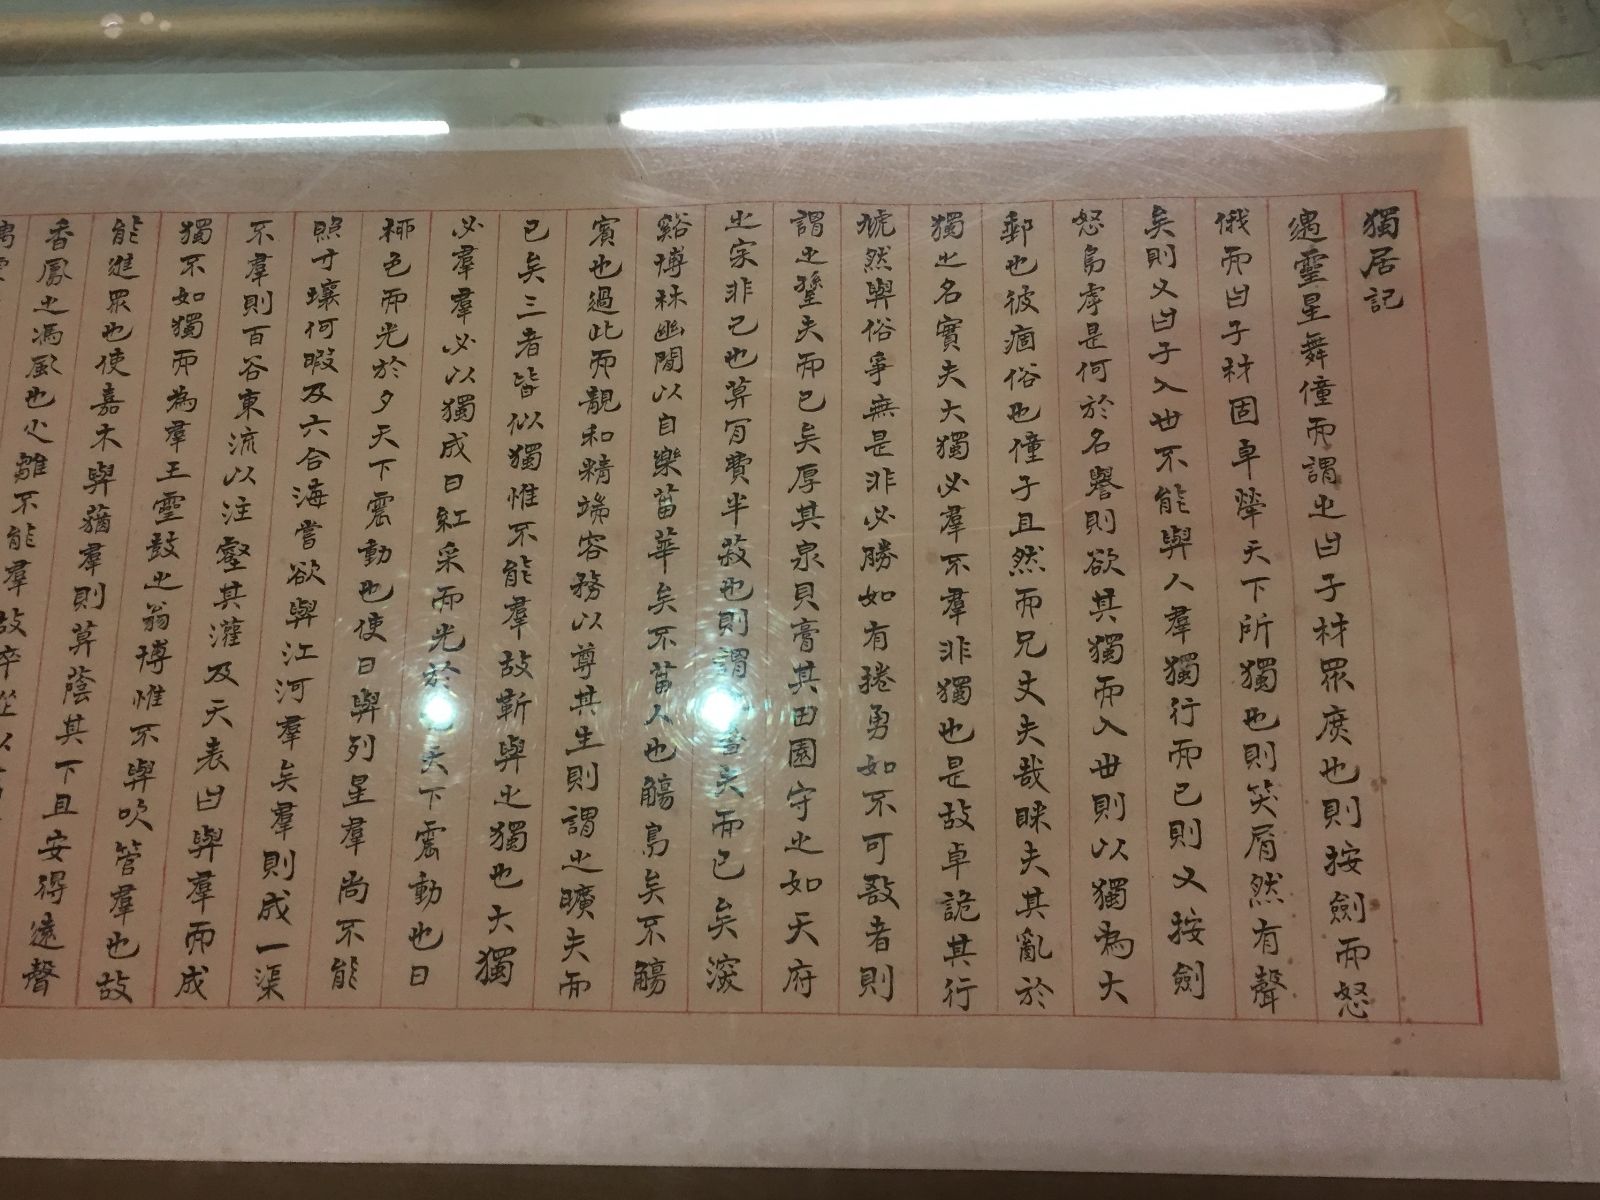 獨居記
遇靈星舞僮而謂之曰子材眾庶也則按劍而怒
俄而曰子材固卓犖天下所獨也則笑屑然有聲
矣則又曰子入世不能與人羣獨行而已則又按劍
怒烏虖是何於名譽則欲其獨而入世則以獨為大
郵也彼痼俗也僮子且然而兄丈夫哉眯夫其亂於
獨之名實夫大獨必羣不羣非獨也是故卓詭其行
虓然與俗爭無是非必勝如有捲勇如不可敔者則
謂之鷙夫而已矣厚其泉貝膏其田園守之如天府
之宗非己也莫肎費半菽也則謂 嗇夫而已矣深
谿博林幽閒以自樂菑華矣不菑人也觴鳥矣不觴
賓也過此而靚和精端容務以尊其生則謂之曠夫而
已矣三者皆似獨惟不能羣故靳與之獨也大獨
必羣羣必以獨成日紅采而光於 天下震動也日
柳色而光於夕天下震動也使日與列星羣尚不能
照寸壤何暇及六合海嘗欲與江河羣矣羣則成一渠
不羣則百谷東流以注壑其灌及天表曰與羣而成
獨不如獨而為羣王靈鼓之翁博惟不與吹管羣也故
能進眾也使嘉木與蕕羣則莫蔭其下且安得遠聲
香鳳之馮風也心離不能羣故卒從以